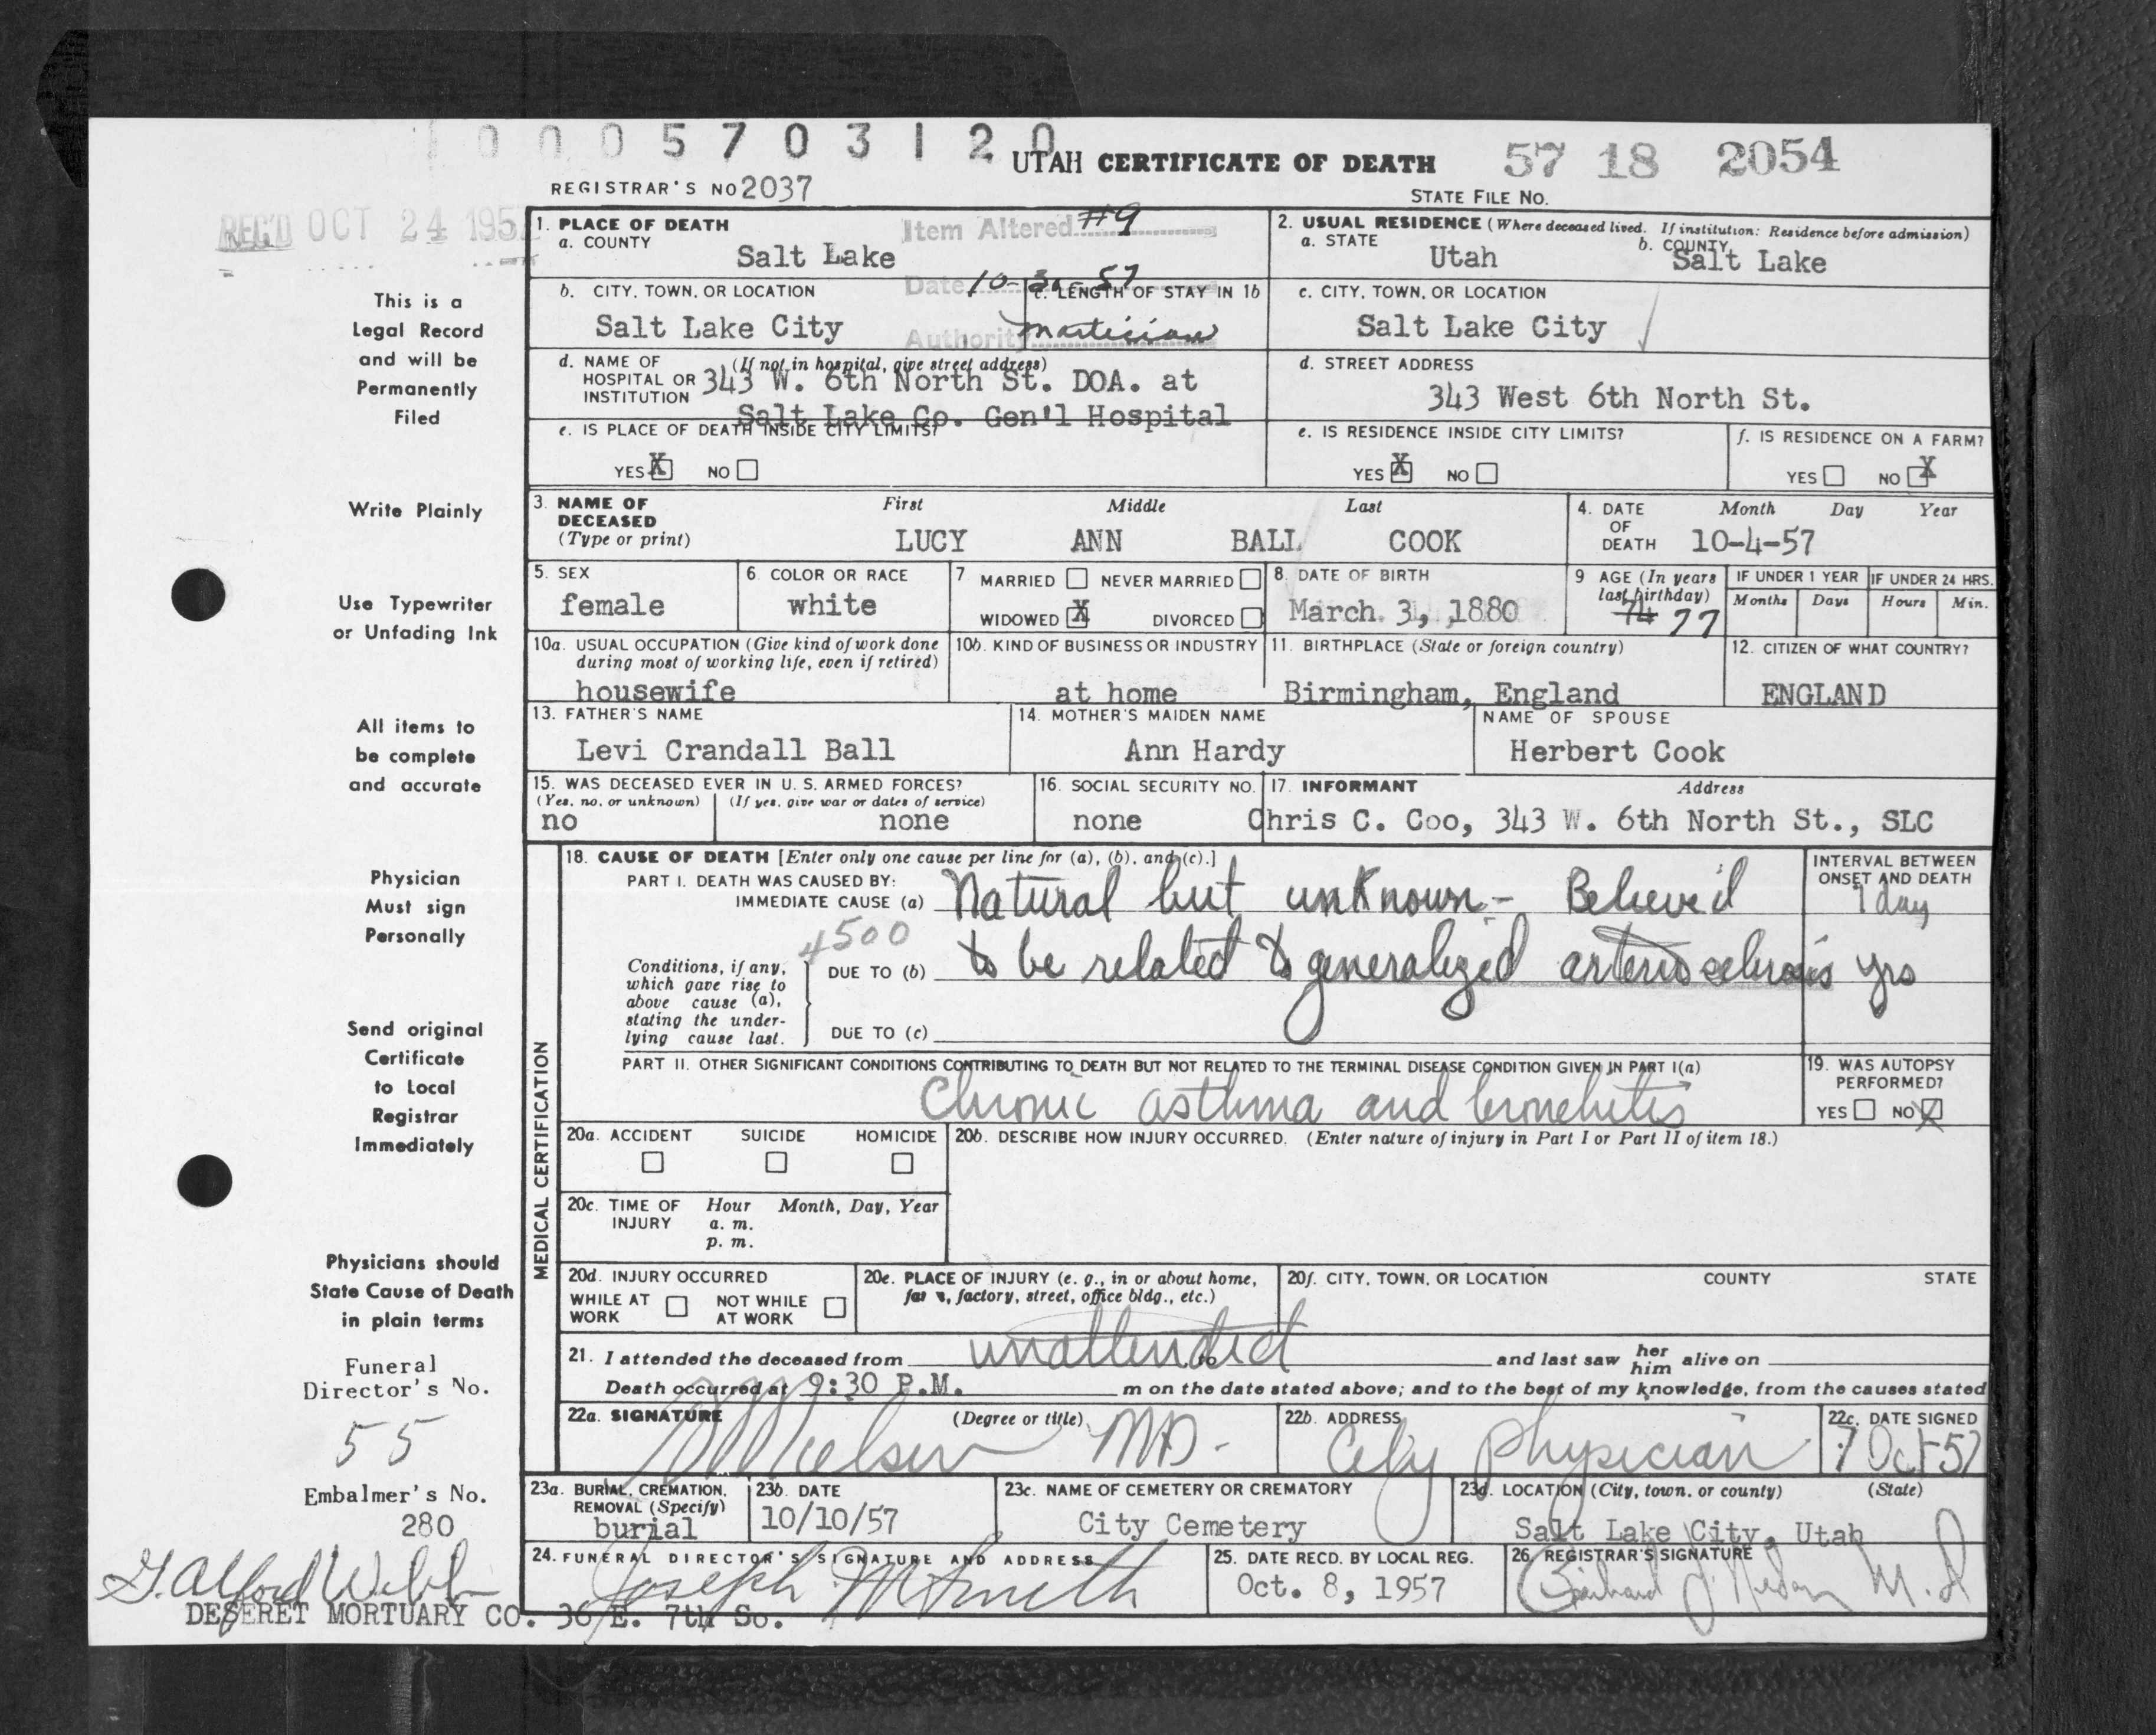 10005703120
UTAH CERTIFICATE OF DEATH 57 18 2054
REGISTRAR'S NO 2037
STATE FILE NO.
REC'D OCT 24 195
Item Altered #9
Date 10-30-57
Authority mortician
This is a
Legal Record
and will be
Permanently
Filed
Write Plainly
Use Typewriter
or Unfading Ink
All items to
be complete
and accurate
Physician
Must sign
Personally
Send original
Certificate
to Local
Registrar
Immediately
Physicians should
State Cause of Death
in plain terms
Funeral
Director's No.
55
Embalmer's No.
280
G. Alford Webb
DESERET MORTUARY CO. 36 E. 7th So.
1. PLACE OF DEATH
a. COUNTY
Salt Lake
2. USUAL RESIDENCE (Where deceased lived. If institution: Residence before admission)
a. STATE Utah b. COUNTY Salt Lake
b. CITY, TOWN, OR LOCATION
Salt Lake City
c. LENGTH OF STAY IN 1b
c. CITY, TOWN, OR LOCATION
Salt Lake City
d. NAME OF HOSPITAL OR INSTITUTION (If not in hospital, give street address)
343 W. 6th North St. DOA. at
Salt Lake Co. Gen'l Hospital
d. STREET ADDRESS
343 West 6th North St.
e. IS PLACE OF DEATH INSIDE CITY LIMITS?
YES X NO
e. IS RESIDENCE INSIDE CITY LIMITS?
YES X NO
f. IS RESIDENCE ON A FARM?
YES NO X
3. NAME OF DECEASED (Type or print)
First Middle Last
LUCY ANN BALL COOK
4. DATE OF DEATH Month Day Year
10-4-57
5. SEX
female
6. COLOR OR RACE
white
7 MARRIED NEVER MARRIED
WIDOWED X DIVORCED
8. DATE OF BIRTH
March 3, 1880
9 AGE (In years last birthday)
74 77
IF UNDER 1 YEAR IF UNDER 24 HRS.
Months Days Hours Min.
10a. USUAL OCCUPATION (Give kind of work done during most of working life, even if retired)
housewife
10b. KIND OF BUSINESS OR INDUSTRY
at home
11. BIRTHPLACE (State or foreign country)
Birmingham, England
12. CITIZEN OF WHAT COUNTRY?
ENGLAND
13. FATHER'S NAME
Levi Crandall Ball
14. MOTHER'S MAIDEN NAME
Ann Hardy
NAME OF SPOUSE
Herbert Cook
15. WAS DECEASED EVER IN U. S. ARMED FORCES?
(Yes, no, or unknown) (If yes, give war or dates of service)
no none
16. SOCIAL SECURITY NO.
none
17. INFORMANT Address
Chris C. Coo, 343 W. 6th North St., SLC
MEDICAL CERTIFICATION
18. CAUSE OF DEATH [Enter only one cause per line for (a), (b), and (c).]
PART I. DEATH WAS CAUSED BY:
IMMEDIATE CAUSE (a) Natural but unknown - Believed
INTERVAL BETWEEN ONSET AND DEATH
1 day
4500
Conditions, if any, which gave rise to above cause (a), stating the underlying cause last.
DUE TO (b) to be related to generalized arteriosclerosis yrs
DUE TO (c)
PART II. OTHER SIGNIFICANT CONDITIONS CONTRIBUTING TO DEATH BUT NOT RELATED TO THE TERMINAL DISEASE CONDITION GIVEN IN PART I(a)
Chronic asthma and bronchitis
19. WAS AUTOPSY PERFORMED?
YES NO X
20a. ACCIDENT SUICIDE HOMICIDE
20b. DESCRIBE HOW INJURY OCCURRED. (Enter nature of injury in Part I or Part II of item 18.)
20c. TIME OF INJURY Hour Month, Day, Year
a. m.
p. m.
20d. INJURY OCCURRED
WHILE AT WORK NOT WHILE AT WORK
20e. PLACE OF INJURY (e. g., in or about home, farm, factory, street, office bldg., etc.)
20f. CITY, TOWN, OR LOCATION COUNTY STATE
21. I attended the deceased from unattended to and last saw her him alive on
Death occurred at 9:30 P.M. m on the date stated above; and to the best of my knowledge, from the causes stated
22a. SIGNATURE (Degree or title)
Nielsen MD.
22b. ADDRESS
City Physician
22c. DATE SIGNED
7 Oct 57
23a. BURIAL, CREMATION, REMOVAL (Specify)
burial
23b. DATE
10/10/57
23c. NAME OF CEMETERY OR CREMATORY
City Cemetery
23d. LOCATION (City, town, or county) (State)
Salt Lake City, Utah
24. FUNERAL DIRECTOR'S SIGNATURE AND ADDRESS
Joseph M Smith
25. DATE RECD. BY LOCAL REG.
Oct. 8, 1957
26. REGISTRAR'S SIGNATURE
M.D